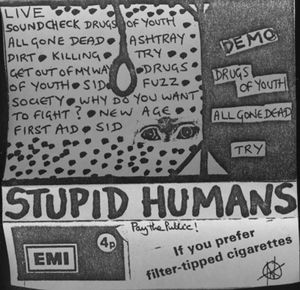 LIVE
SOUNDCHECK DRUGS OF YOUTH
ALL GONE DEAD • ASHTRAY
DIRT • KILLING • TRY
GET OUT OF MY WAY • DRUGS
OF YOUTH • SID • FUZZ
SOCIETY • WHY DO YOU WANT
TO FIGHT? • NEW AGE •
FIRST AID • SID
DEMO
DRUGS
OF YOUTH
ALL GONE DEAD
TRY
STUPID HUMANS
Pay the Public!
EMI
4p
If you prefer
filter-tipped cigarettes